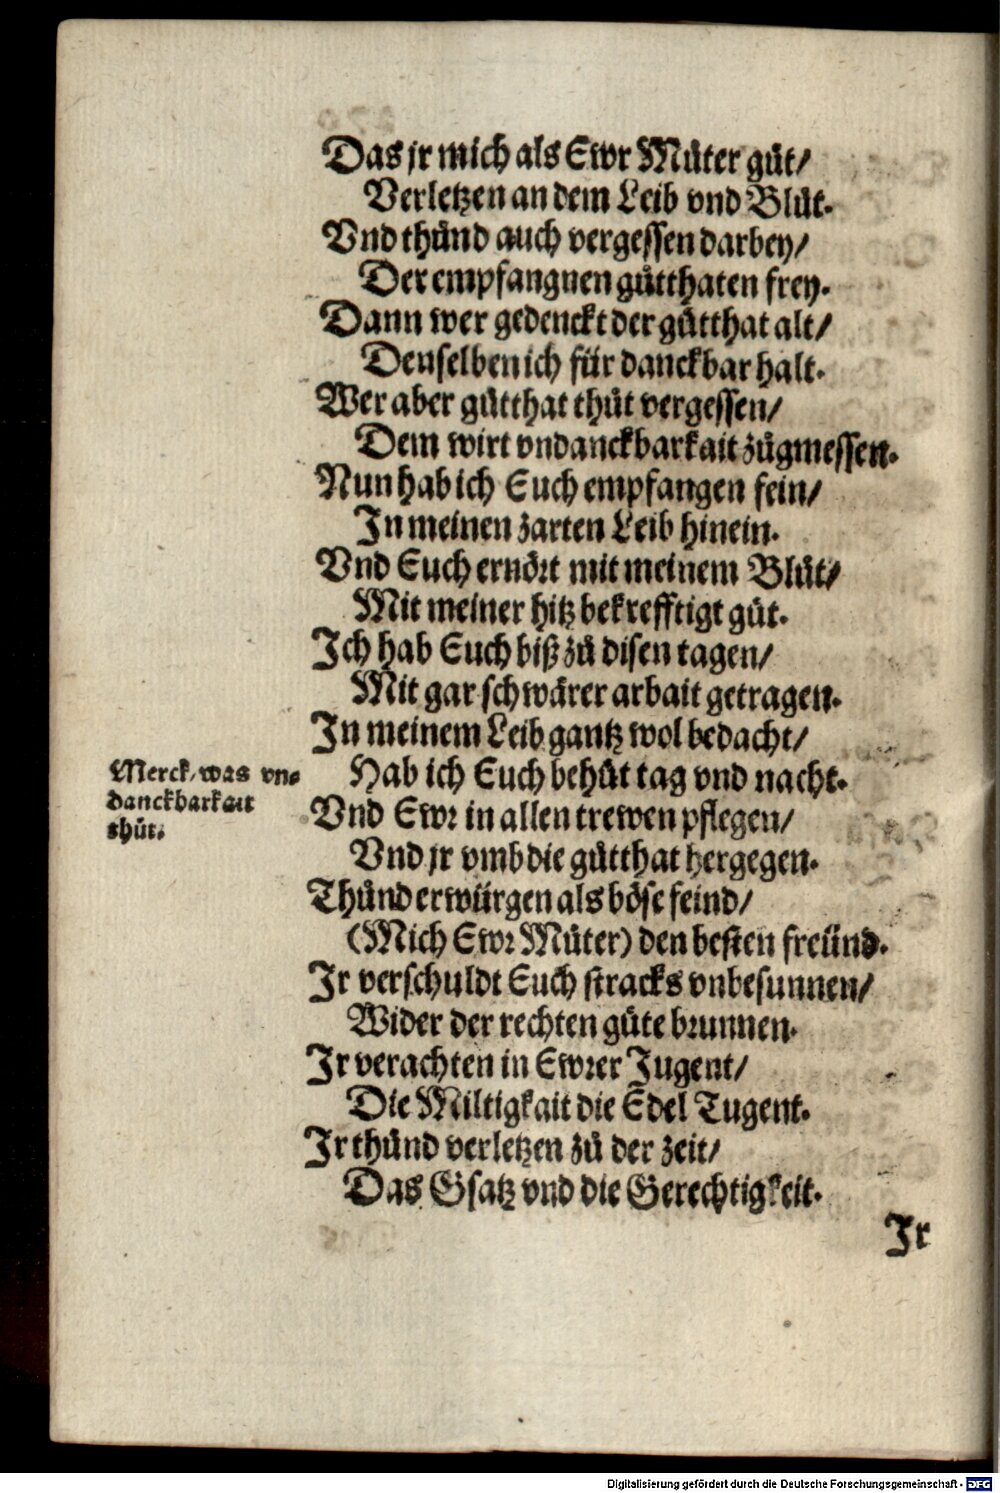 Das jr mich als Ewr Můter gůt/
Verletzen an dem Leib vnd Blůt.
Vnd thůnd auch vergessen darbey/
Der empfangnen gůtthaten frey.
Dann wer gedenckt der gůtthat alt/
Denselben ich für danckbar halt.
Wer aber gůtthat thůt vergessen/
Dem wirt vndanckbarkait zůgmessen.
Nun hab ich Euch empfangen fein/
In meinen zarten Leib hinein.
Vnd Euch ernört mit meinem Blůt/
Mit meiner hitz bekrefftigt gůt.
Ich hab Euch biß zů disen tagen/
Mit gar schwärer arbait getragen.
In meinem Leib gantz wol bedacht/
Merck/was vn=
danckbarkait
thůt.
Hab ich Euch behůt tag vnd nacht.
Vnd Ewr in allen trewen pflegen/
Vnd jr vmb die gůtthat hergegen.
Thůnd erwürgen als böse feind/
(Mich Ewr Můter) den besten freünd.
Ir verschuldt Euch stracks vnbesunnen/
Wider der rechten güte brunnen.
Ir verachten in Ewrer Jugent/
Die Miltigkait die Edel Tugent.
Ir thůnd verletzen zů der zeit/
Das Gsatz vnd die Gerechtigkeit.
Ir
Digitalisierung gefördert durch die Deutsche Forschungsgemeinschaft - DFG